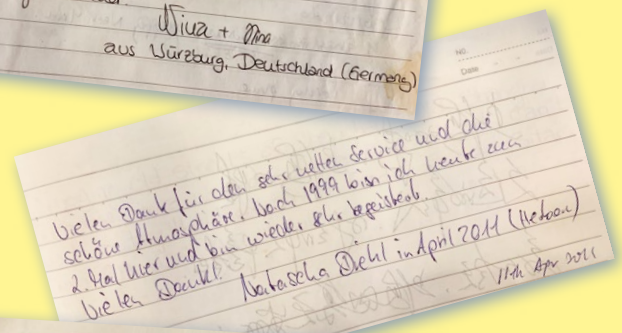 Nina + Nina
aus Würzburg, Deutschland (Germany)
No.
Date
Vielen Dank für den sehr netten Service und die
schöne Atmosphäre. Nach 1999 bin ich heute zum
2. Mal hier und bin wieder sehr begeistert.
Vielen Dank!
Natascha Diehl in April 2011
11th Apr 2011